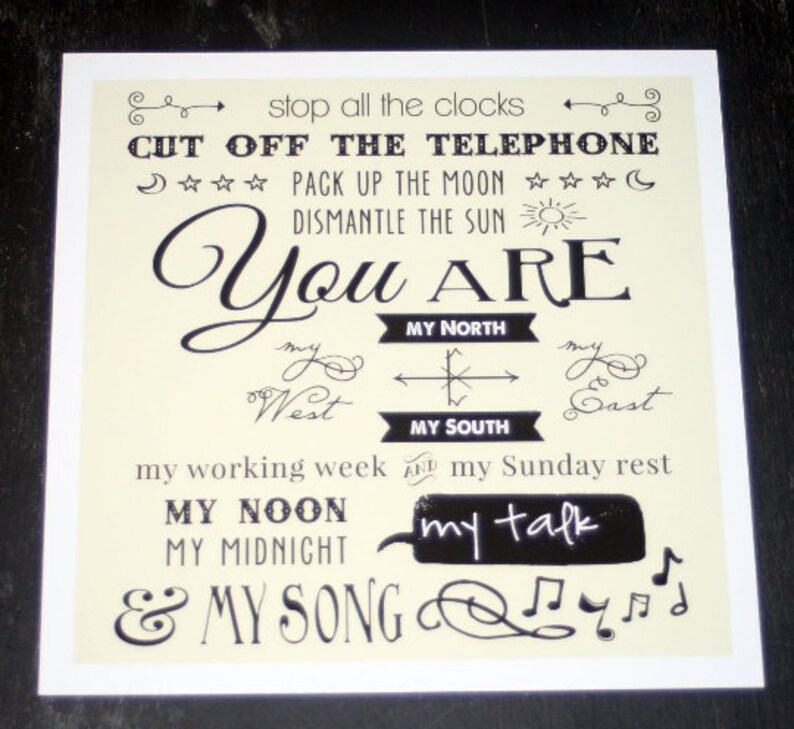 stop all the clocks
CUT OFF THE TELEPHONE
PACK UP THE MOON
DISMANTLE THE SUN
You ARE
MY NORTH
my West
my East
MY SOUTH
my working week AND my Sunday rest
MY NOON
MY MIDNIGHT
my talk
& MY SONG